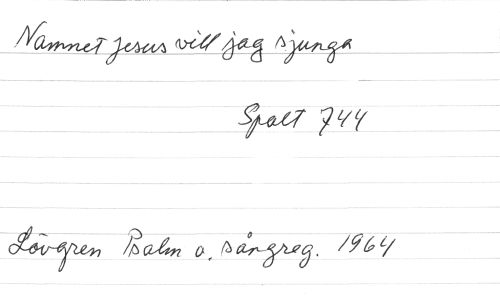 Namnet Jesus vill jag sjunga
Spalt 744
Lövgren Psalm o. sångreg. 1964